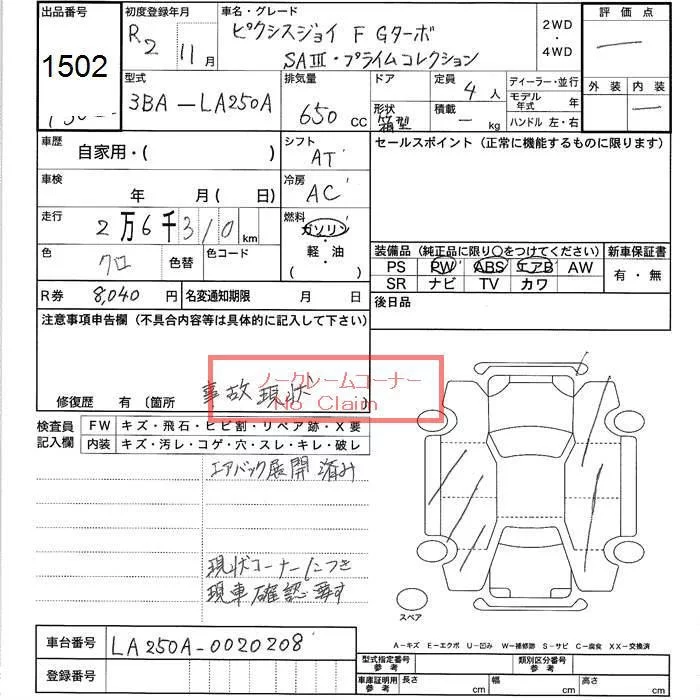 出品番号
1502
初度登録年月
R2 11月
車名・グレード
ピクシスジョイ F Gターボ
SAⅢ・プライムコレクション
2WD
・
4WD
評価点
外装 内装
型式
3BA-LA250A
排気量
650 CC
ドア
形状
箱型
定員
4 人
積載
- kg
ディーラー・並行
モデル年式 年
ハンドル 左・右
車歴
自家用・( )
シフト
AT
セールスポイント（正常に機能するものに限ります）
車検
年 月( 日)
冷房
AC
走行
2万6千310km
燃料
ガソリン
・
軽・油
・
( )
色
クロ
色替
色コード
装備品（純正品に限り○をつけてください）
新車保証書
PS PW ABS エアB AW
SR ナビ TV カワ
有・無
R券 8,040 円
名変通知期限 月 日
後日品
注意事項申告欄（不具合内容等は具体的に記入して下さい）
修復歴 有（箇所 )
事故現状
ノークレームコーナー
No Claim
検査員記入欄
FW キズ・飛石・ヒビ割・リペア跡・X要
内装 キズ・汚レ・コゲ・穴・スレ・キレ・破レ
エアバック展開済み
現状コーナーにつき
現車確認要す
スペア
A-キズ E-エクボ U-凹み W-補修跡 S-サビ C-腐食 XX-交換済
車台番号 LA250A-0020208
登録番号
型式指定番号
参考
類別区分番号
参考
車庫証明用
参考
長さ cm
幅 cm
高さ cm